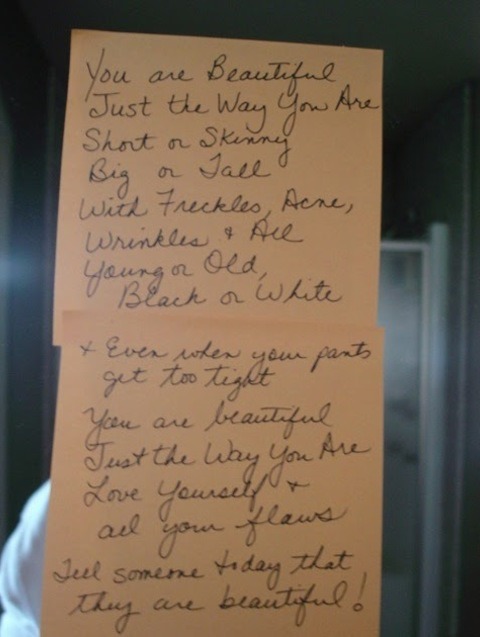 You are Beautiful
Just the Way You Are
Short or Skinny
Big or Tall
With Freckles, Acne,
Wrinkles + All
Young or Old,
Black or White
+ Even when your pants
get too tight
You are beautiful
Just the Way You Are
Love Yourself +
all your flaws
Tell someone today that
they are beautiful!